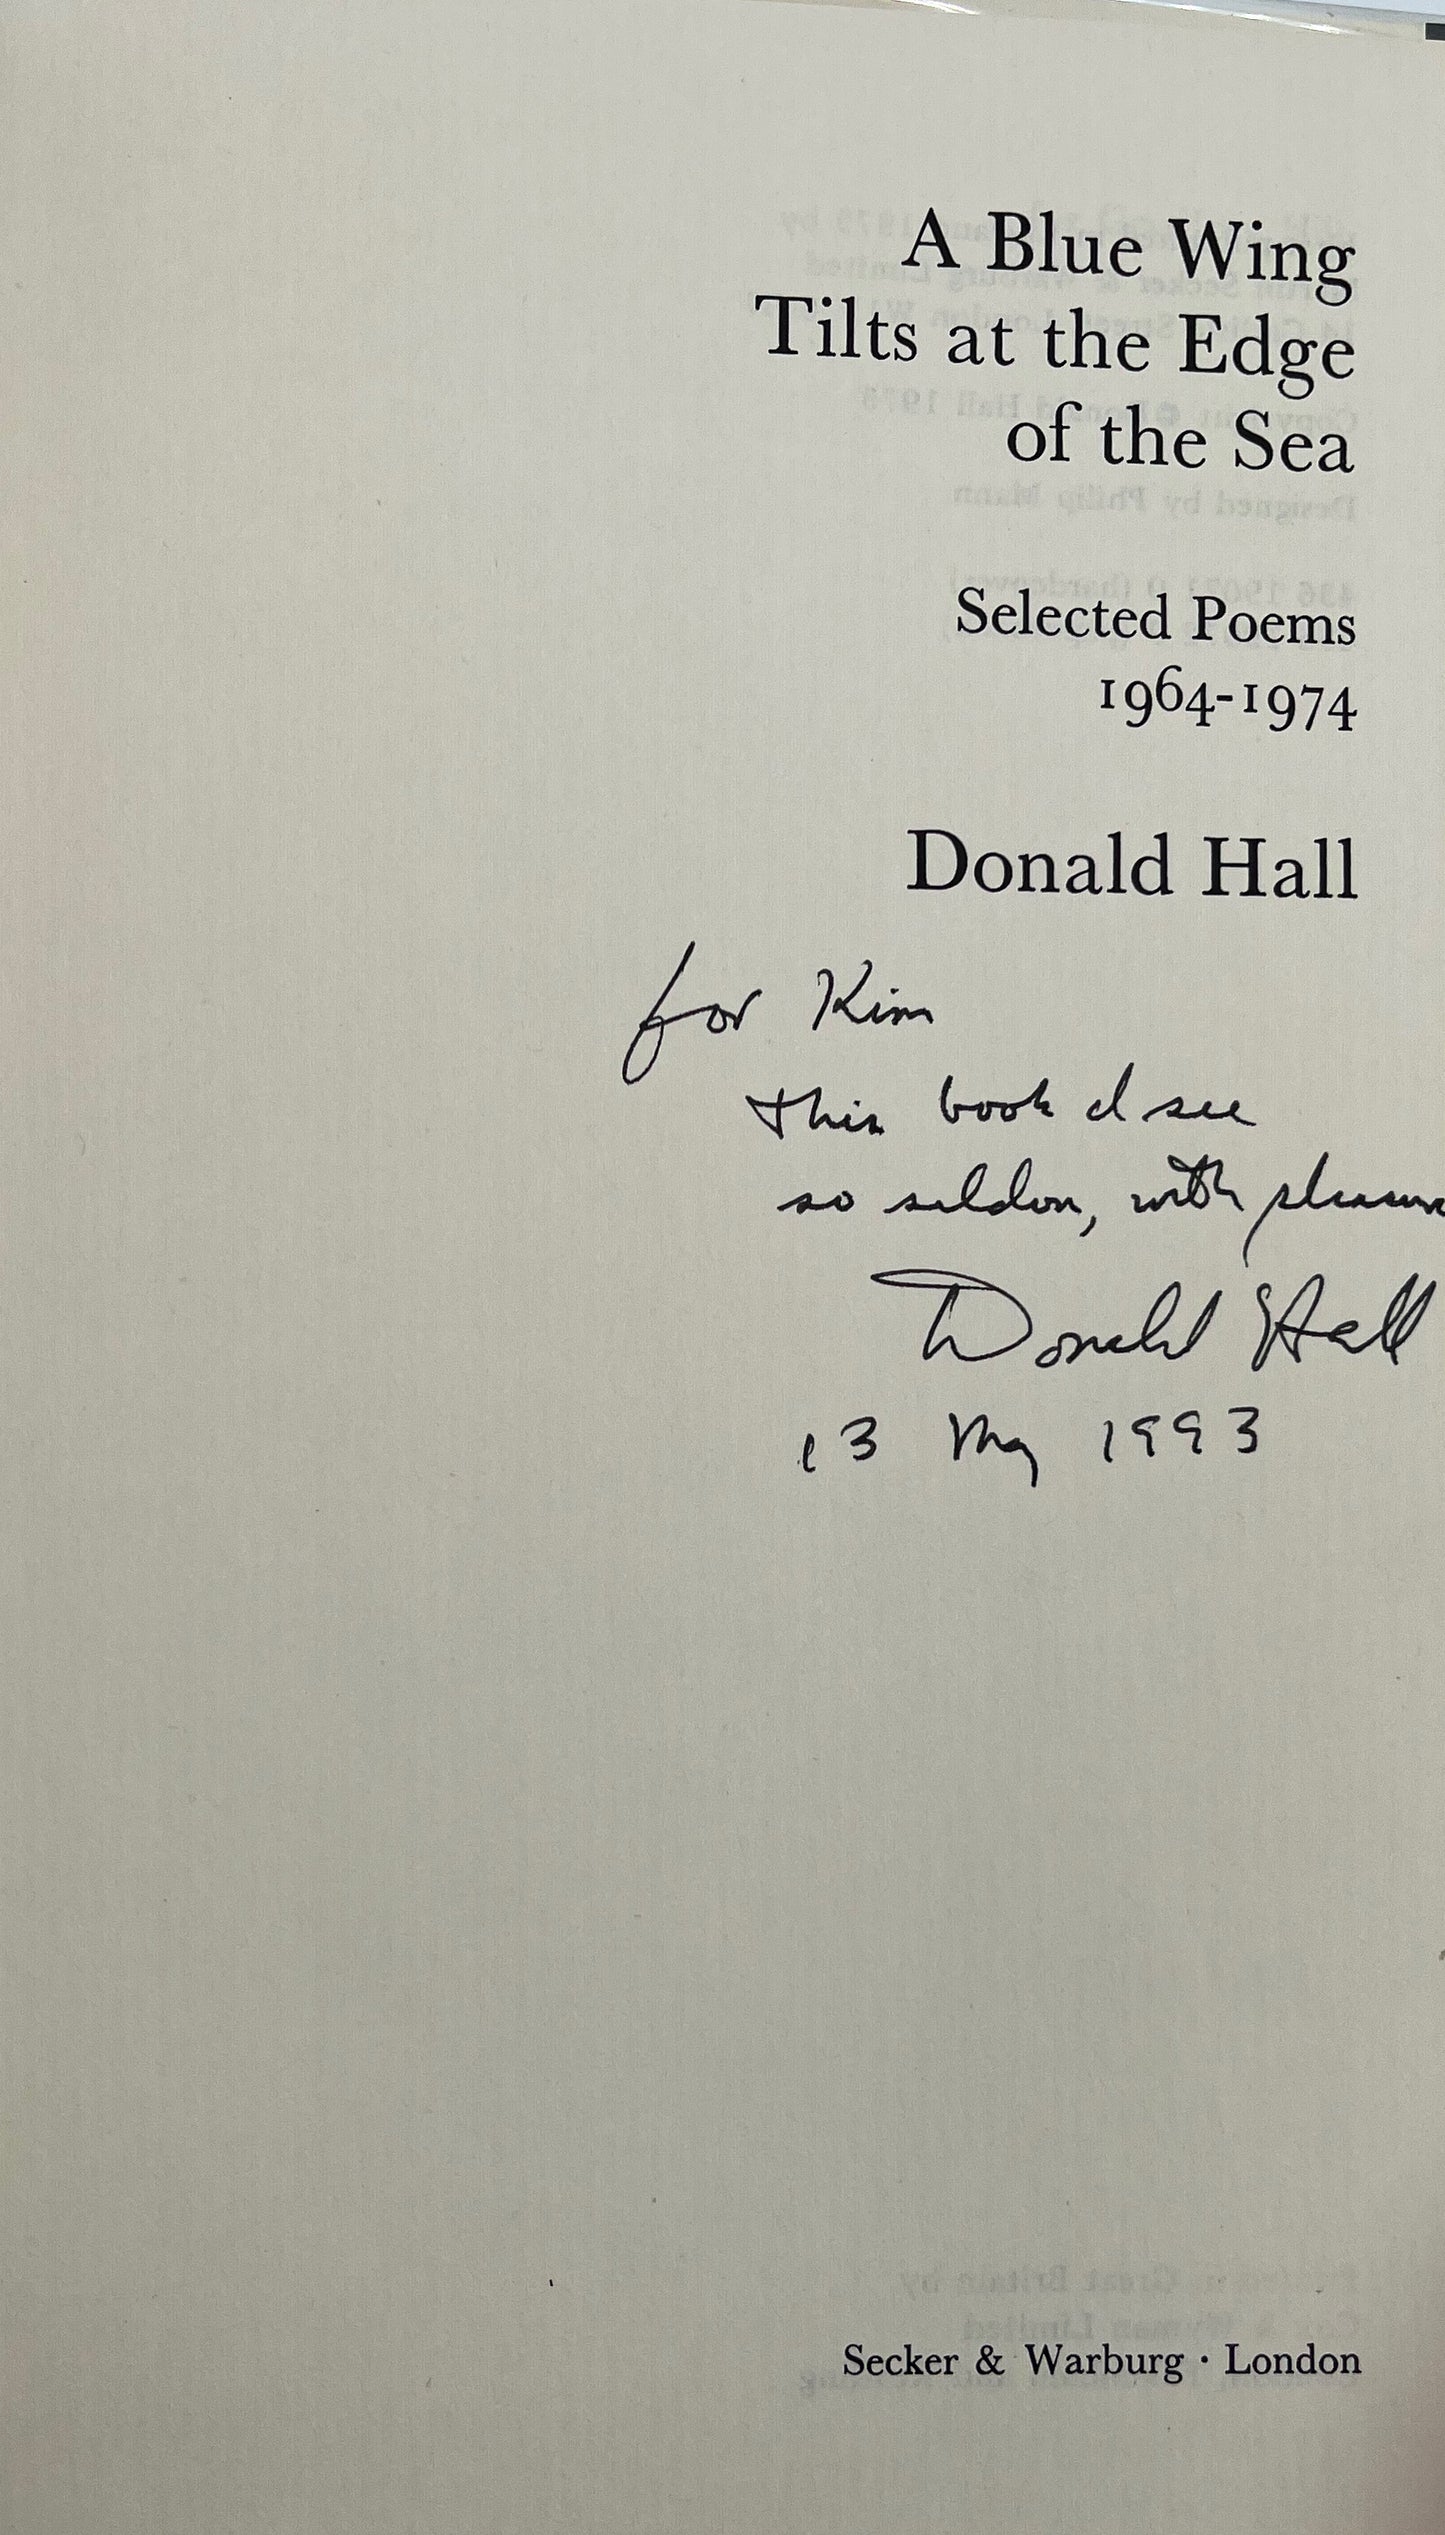 A Blue Wing
Tilts at the Edge
of the Sea
Selected Poems
1964-1974
Donald Hall
for Kim
this book I see
so seldom, with pleasure
Donald Hall
13 May 1993
Secker & Warburg · London